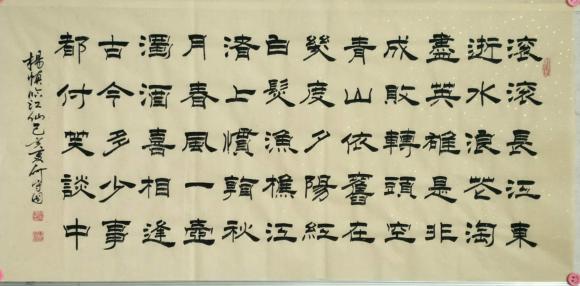 滚滚長江東
逝水浪花淘
盡英雄是非
成敗轉頭空
青山依舊在
幾度夕陽紅
白髮漁樵江
渚上慣秋
月春風一壺
濁酒喜相逢
古今多少事
都付笑談中
楊慎临江仙己亥夏